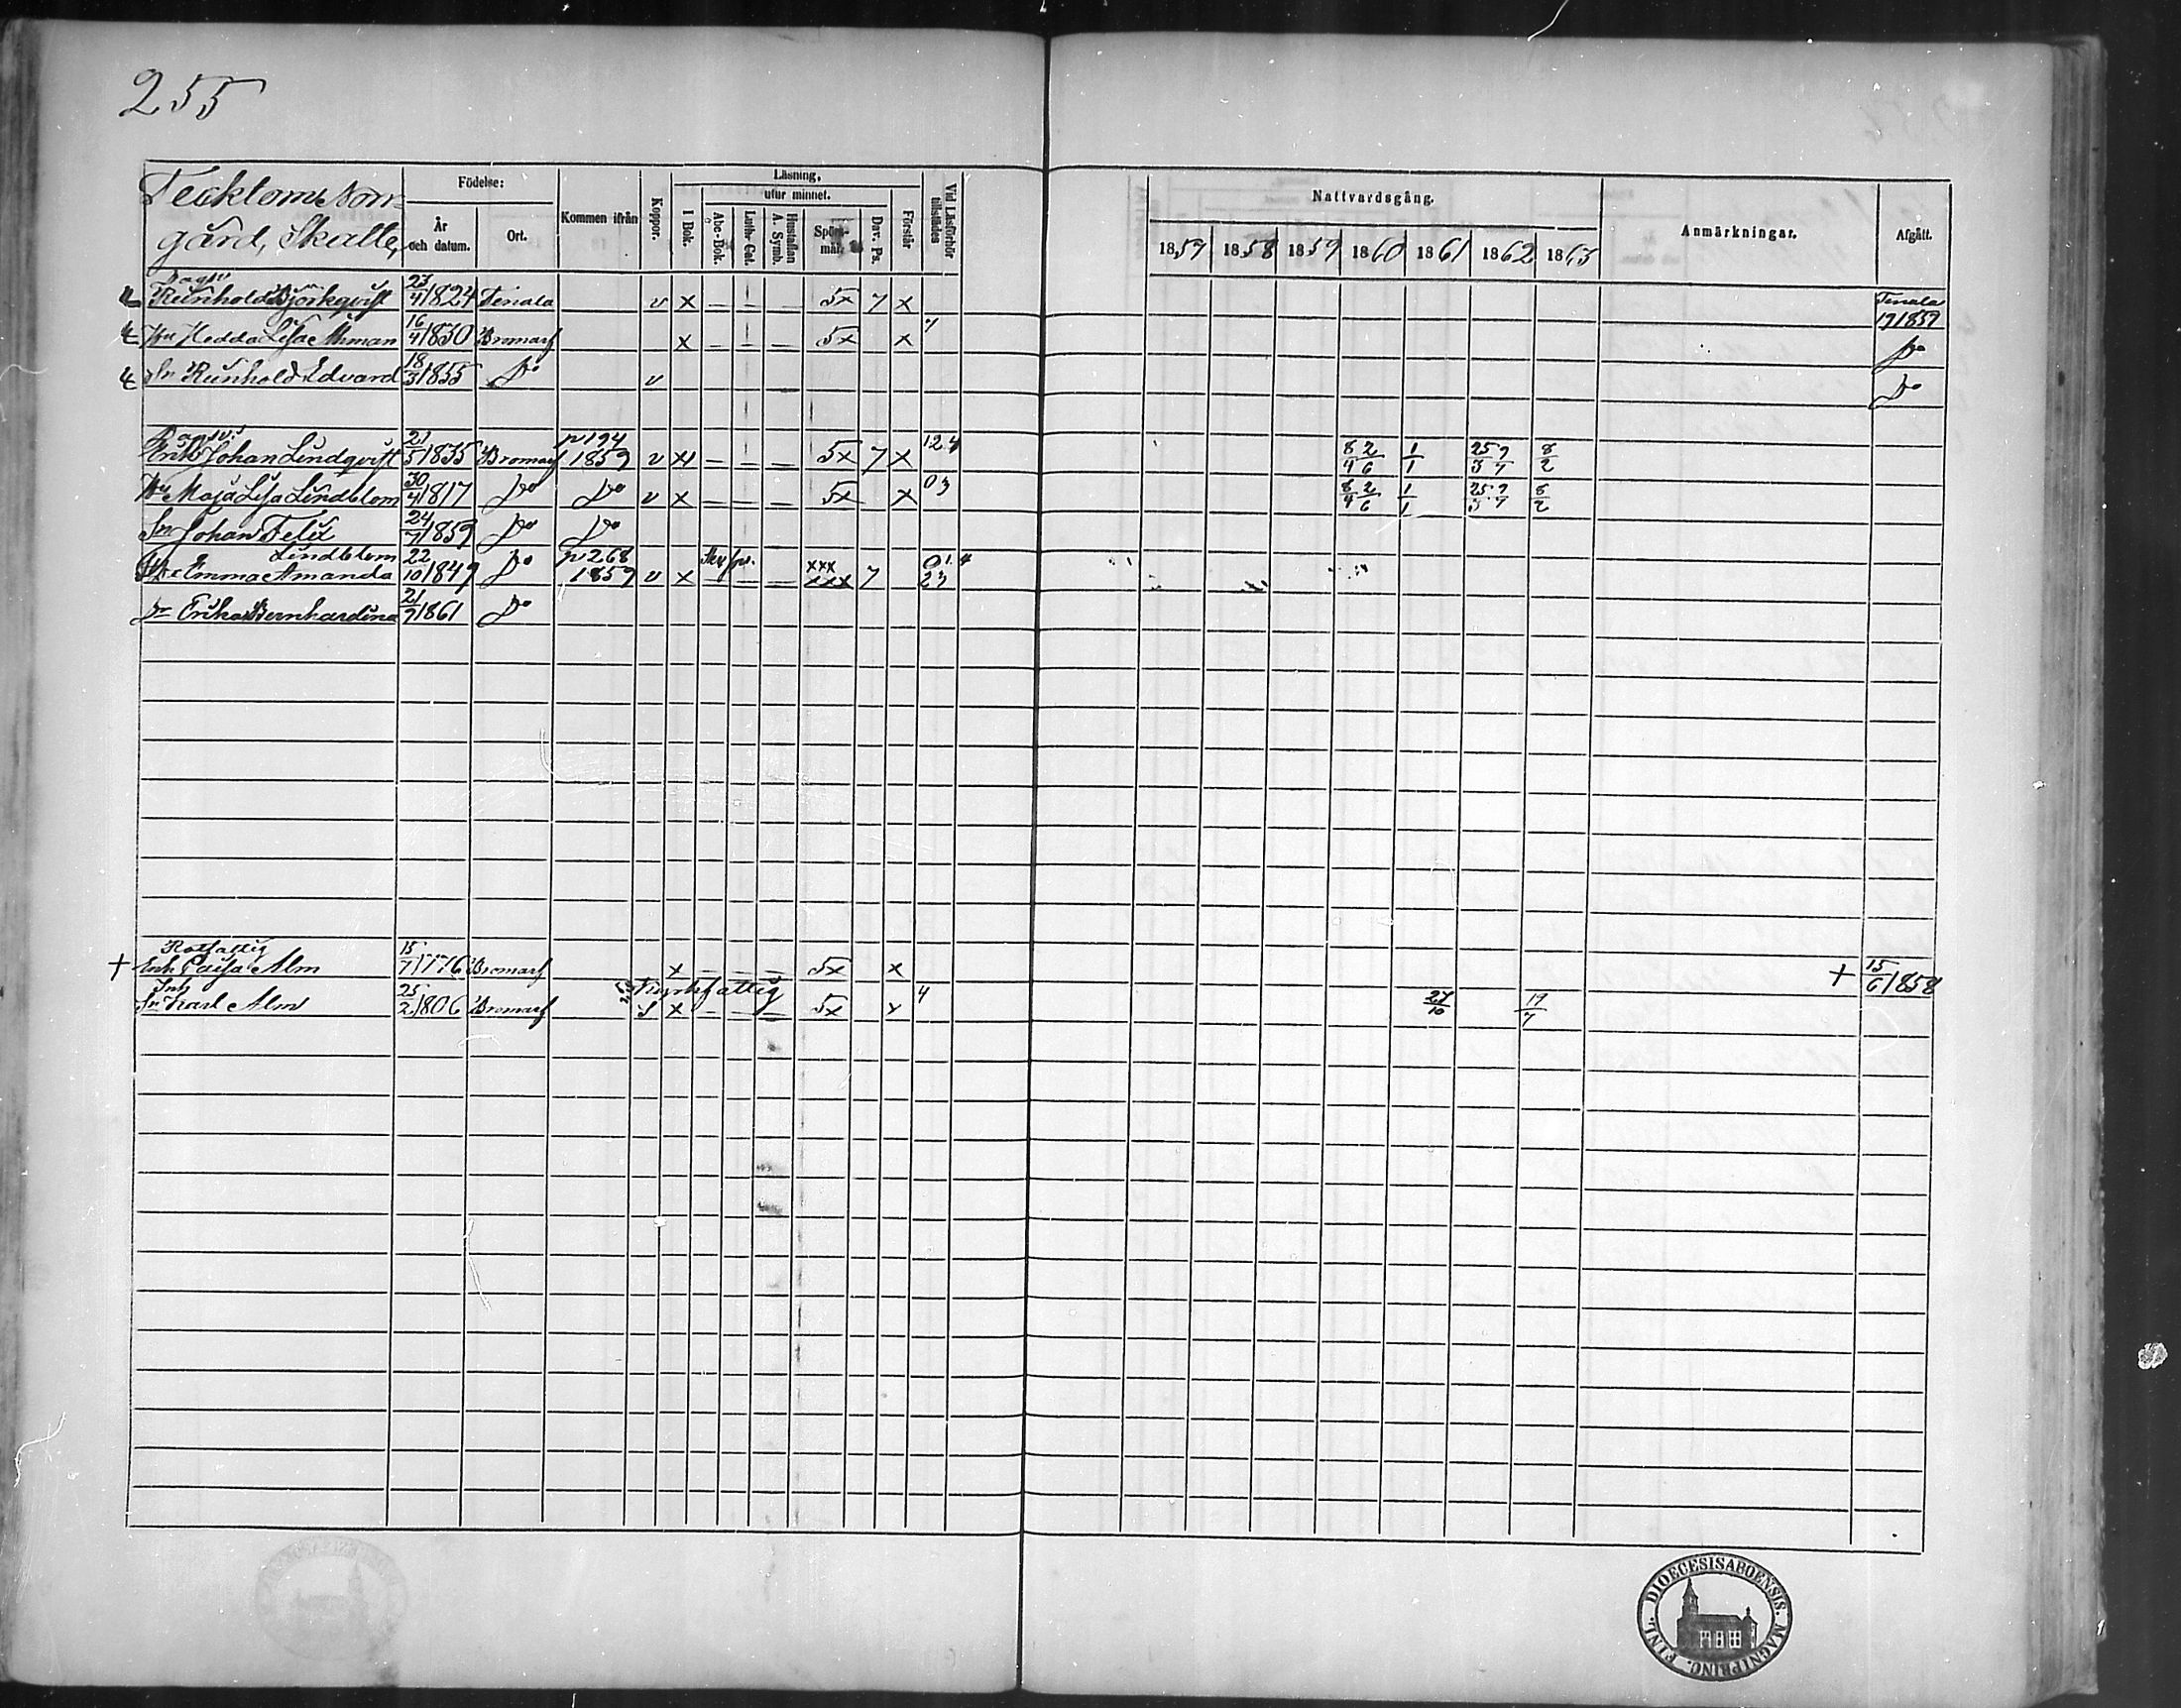 255
Tecktom Norr-
gård, Skalte,
Födelse:
År och datum.
Ort.
Kommen ifrån
Koppor.
Läsning,
I Bok.
utur minnet.
Abc-Bok.
Luth. Cat.
Hustaflan A. Symb.
Spörs-mål.
Dav. Ps.
Förstår
Vid Läsförhör tillstädes
Nattvardsgång.
1857 1858 1859 1860 1861 1862 1863
Anmärkningar.
Afgått.
Reinhold Björkqvist 23/4 1824 Tenala v x – – – 5x 7 x Tenala 17 1859
Hu Hedda Lisa Åhman 16/4 1830 Bromarf x – – – 5x x 4 Do
Sn Reinhold Edvard 18/3 1855 Do v Do
Erik Johan Lindqvist 21/5 1835 Bromarf p 194 1859 v x – – – 5x 7 x 124 8/4 2/6 1/1 25/3 7/7 8/2
Hu Maja Lisa Lindblom 30/4 1817 Do Do v x – – – 5x x 03 8/4 2/6 1/1 25/3 7/7 8/2
Sn Johan Felix 24/7 1859 Do Do
Lindblom
Emma Amanda 22/10 1849 Do p 268 1859 v x – – – xxx xxx 7 01.4 23
Dr Erika Bernhardina 21/7 1861 Do
Rotfattig
+ Enk. Caisa Alm 15/7 1776 Bromarf x – – – 5x x + 15/6 1858
Inh
Sn Karl Alm 25/2 1806 Bromarf Kyrkfattig S x – – – 5x x 4 27/10 19/7
FINL. DIOECESIS ABOENSIS. MAGNI PRINC.